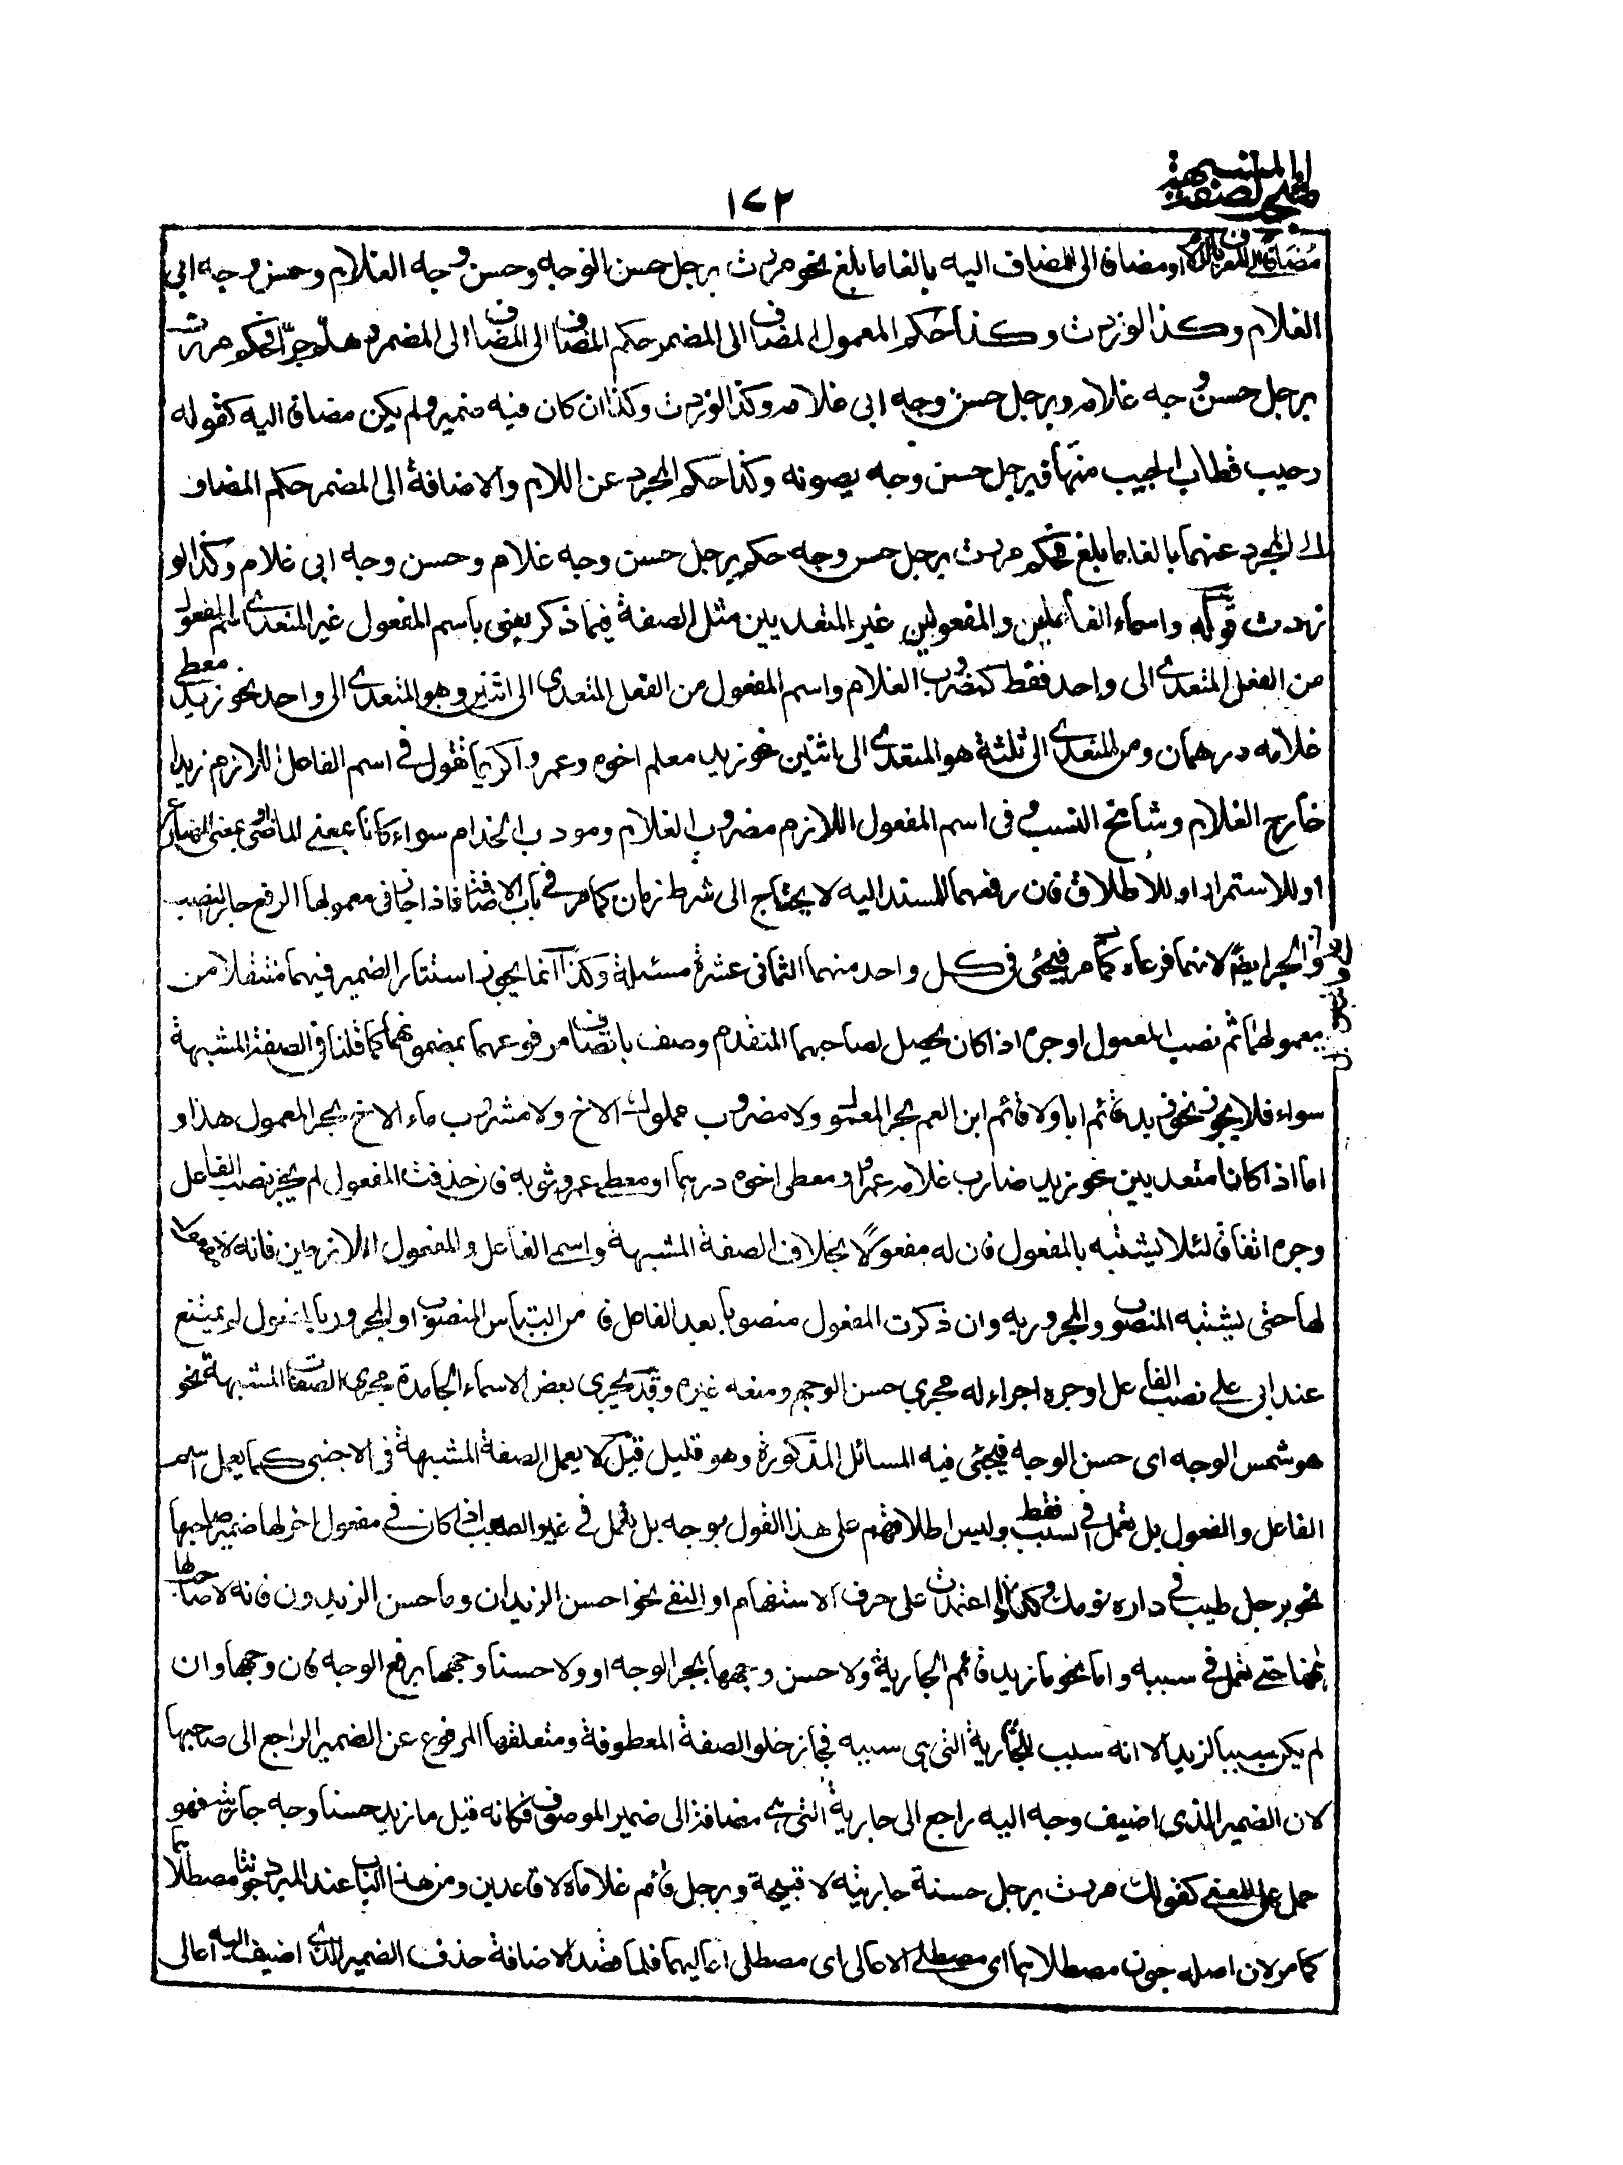 ١٧٢
مضاف الى المعرف باللام او مضاف الى المضاف اليه بالغا ما بلغ نحو مررت برجل حسن الوجه وحسن وجه الغلام وحسن وجه ابى
الغلام وكذا لو زدت وكذا حكم المعمول المضاف الى المضمر حكم المضاف الى المضاف الى المضمر وهلم جرا فحكم مررت
برجل حسن وجه غلامه وبرجل حسن وجه ابى غلامه وكذا لو زدت وكذا ان كان فيه ضمير ولم يكن مضاف اليه كقوله
رحيب قطاب الجيب منها فبرجل حسن وجه يصونه وكذا حكم المجرد عن اللام والاضافة الى المضمر حكم المضاف
الى المجرد عنهما بالغا ما بلغ فحكم مررت برجل حسن وجه حكم برجل حسن وجه غلام وحسن وجه ابى غلام وكذا لو
زدت قوله واسماء الفاعلين والمفعولين غير المتعديين مثل الصفة فيما ذكر يعنى باسم المفعول غير المتعدى اسم المفعول
من الفعل المتعدى الى واحد فقط كمضروب الغلام واسم المفعول من الفعل المتعدى الى اثنين وهو المتعدى الى واحد نحو زيد معطى
غلامه درهمان ومن المتعدى الى ثلثة هو المتعدى الى اثنين نحو زيد معلم اخوه وعمرو اكريما تقول فى اسم الفاعل اللازم زيد
خارج الغلام وشامخ النسب وفى اسم المفعول اللازم مضروب الغلام ومودب الخدام سواء كانا بمعنى الماضى او بمعنى المضارع
او للاستمرار او للاطلاق فان رفعهما للمسند اليه لا يحتاج الى شرط زمان كما مر فى باب الاضافة فاذا جاز فى معمولها الرفع جاز النصب
والجر ايضا لانهما فرعاه كما مر فيجئ فى كل واحد منهما الثمانى عشرة مسئلة وكذا انما يجوز استتار الضمير فيهما منتقلا من
معمولهما ثم نصب المعمول او جره اذا كان يحصل لصاحبهما المتقدم وصف باتصاف مرفوعهما بمضمونهما كما قلنا فى الصفة المشبهة
سواء فلا يجوز نحو زيد قائم ابا ولا قائم ابن العم بجر المعمول ولا مضروب مملوك الاخ ولا مشروب ماء الاخ بجر المعمول هذا و
اما اذا كانا متعديين نحو زيد ضارب غلامه عمرا ومعطى اخوه درهما او معطى عمرو ثوبه فان حذفت المفعول لم يجز نصب الفاعل
وجره اتفاقا لئلا يشتبه بالمفعول فان له مفعولا بخلاف الصفة المشبهة واسم الفاعل والمفعول اللازمين فانه لا مفعول
لها حتى يشتبه المنصوب والمجرور به وان ذكرت المفعول منصوبا بعد الفاعل فا من التباس المنصوب او المجرور بالمفعول لم يمتنع
عند ابى على نصب الفاعل او جره اجراء له مجرى حسن الوجه ومنعه غيره وقد يجرى بعض الاسماء الجامدة مجرى الصفات المشبهة نحو
هو شمس الوجه اى حسن الوجه فيجئ فيه المسائل المذكورة وهو قليل قيل لا يعمل الصفة المشبهة فى الاجنبى كما يعمل اسم
الفاعل والمفعول بل تعمل فى السبب فقط وليس اطلاقهم على هذا القول بوجه بل تعمل فى غير السبب اذا كان فى مفعول اخر لها ضمير صاحبها
نحو برجل طيب فى داره نومك وكذا اذا اعتمدت على حرف الاستفهام او النفى نحو احسن الزيدان وما حسن الزيدون فانه لا صاحب لها
ههنا حتى تعمل فى سببه واما نحو ما زيد قائم الجارية ولا حسن وجهها بجر الوجه او ولا حسنا وجهها برفع الوجه فان وجهها وان
لم يكن سببا لزيد الا انه سبب للجارية التى هى سببه فجاز خلو الصفة المعطوفة ومتعلقها المرفوع عن الضمير الراجع الى صاحبها
لان الضمير الذى اضيف وجه اليه راجع الى جارية التى هى مضافة الى ضمير الموصوف فكانه قيل ما زيد حسنا وجه جاريته فهو
حمل على المعنى كقولك مررت برجل حسنة جاريته لا قبيحة وبرجل قائم غلاماه لا قاعدين ومن هذا الباب عند المبرد جونتا مصطلاهما
كما مر لان اصله جون مصطلاهما اى مصطلى الاعالى اى مصطلى اعاليهما فلما قصد الاضافة حذف الضمير الذى اضيف اليه اعالى